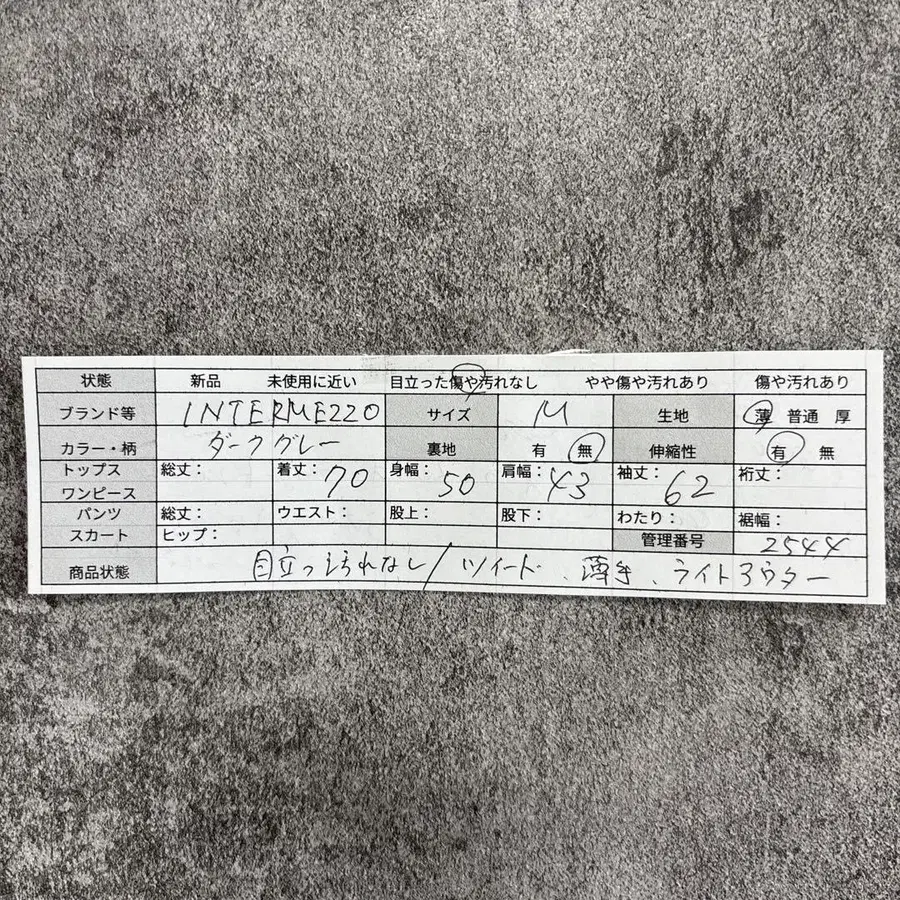 状態 新品 未使用に近い 目立った傷や汚れなし やや傷や汚れあり 傷や汚れあり
ブランド等 INTERMEZZO サイズ M 生地 薄 普通 厚
カラー・柄 ダークグレー 裏地 有 無 伸縮性 有 無
トップス ワンピース 総丈: 着丈: 70 身幅: 50 肩幅: 43 袖丈: 62 裄丈:
パンツ 総丈: ウエスト: 股上: 股下: わたり: 裾幅:
スカート ヒップ: 管理番号 2544
商品状態 目立つ汚れなし/ツイード、薄手、ライトアウター